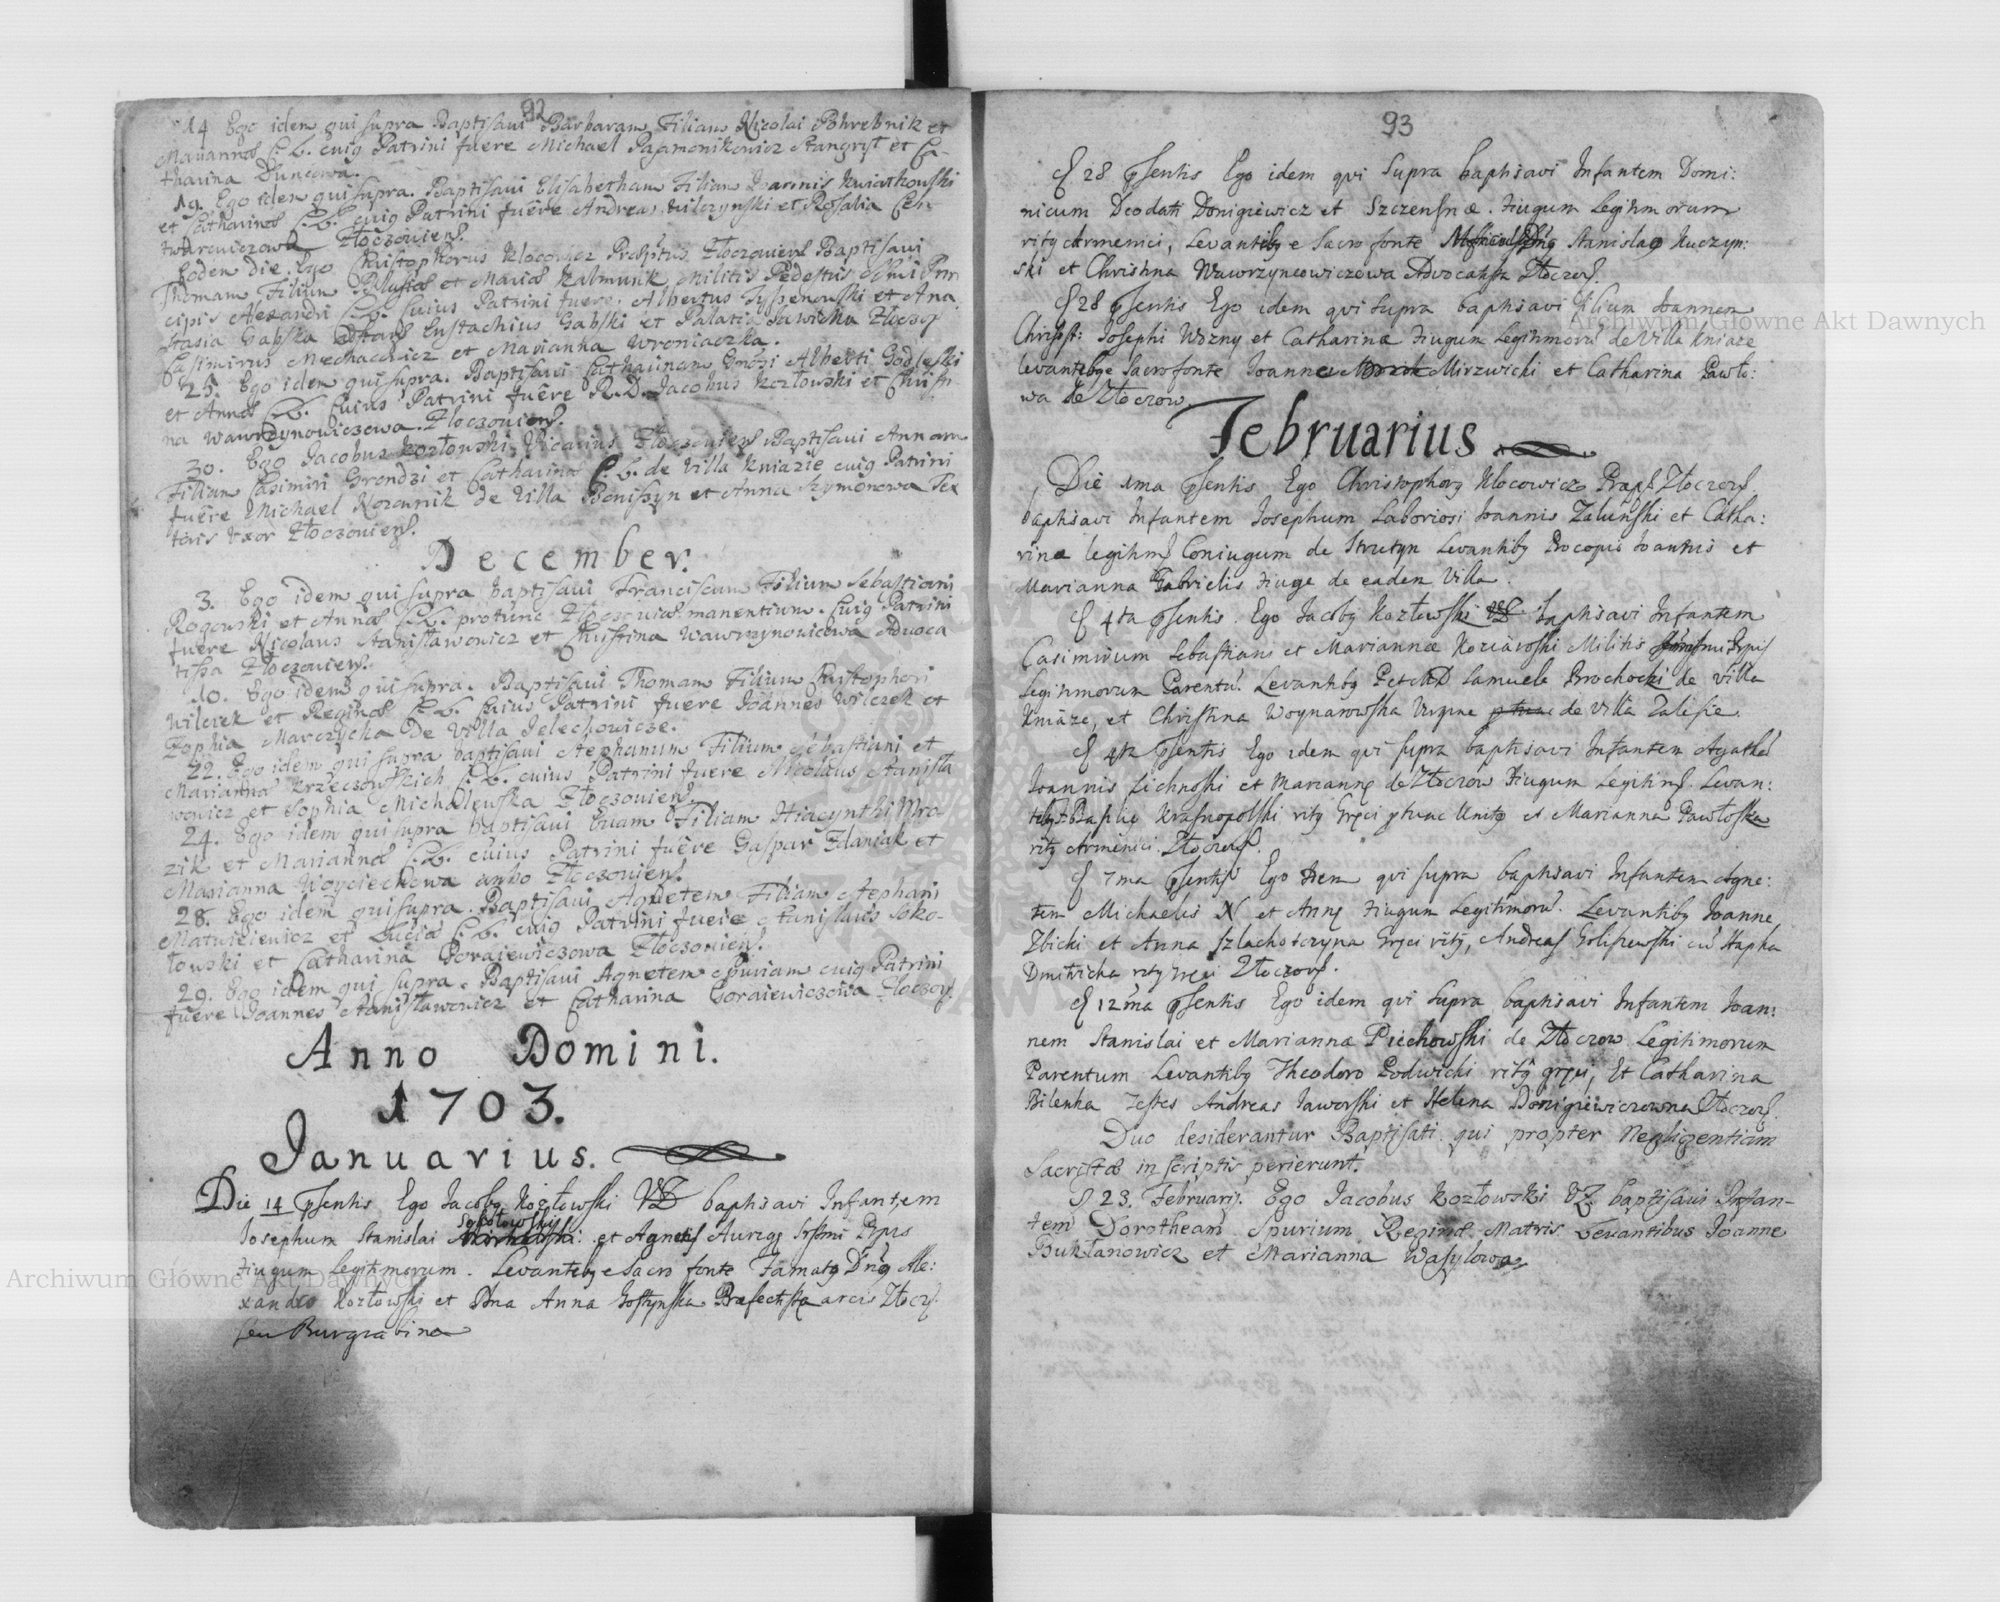 92
14 Ego idem qui supra Baptisavi Barbaram Filiam Nicolai Pohrebnik et
Mariannæ C. L. cuiq Patrini fuere Michael Pasamonikowicz et Ca-
tharina
19. Ego idem qui supra. Baptisavi Elisabetham Filiam Ioannis Kwiatkowski
et Catharinæ C. L. cuiq Patrini fuêre Andreas Wilczynski et Rosalia
Złoczouiens.
Eodem die. Ego Christophorus Klocowicz Præpitus Złoczouiens Baptisaui
Thomam Filium et Mariæ Kalmunik Militis Pedestris Srmi Prin
cipis Alexandri C. L. Cuius Patrini fuere. Albertus et Ana
stasia Gabska Eustachius Gabski et Palatia Sawicka Złoczov
Casimirus Mechacewicz et Marianna Wroniaczka.
25. Ego idem qui supra. Baptisavi Catharinam Gnosi Alberti Godleski
et Annæ C. L. Cuius Patrini fuêre R. D. Jacobus Kozłowski et Christi
na Wawrzynowiczowa. Złoczouiens.
30. Ego Jacobus Kozłowski Vicarius Złoczouiens Baptisaui Annam
Filiam Casimiri Grondzi et Catharinæ C. L. de Villa Kniazie cuiq Patrini
fuêre Michael Korcunik de Villa Benissyn et Anna Szymonowa Tex
toris Vxor Złoczouiens.
December.
3. Ego idem qui supra baptisaui Franciscum Filium Sebastiani
Rogowski et Annæ C. L. protunc Złoczouiæ manentium. Cuiq Patrini
fuere Nicolaus Stanisławowicz et Christina Wawrzynowicowa Aduoca
tissa Złoczouiens.
10. Ego idem qui supra. Baptisaui Thomam Filium Christophori
Wilczek et Reginæ C. L. Cuius Patrini fuere Joannes Wilczek et
Zophia Marczycka De Villa Jelechowicze.
22. Ego idem qui supra baptisaui Stephanum Filium Sebastiani et
Mariannæ Krzeczowskich C. L. cuius Patrini fuere Nicolaus Stanisła
wowicz et Sophia Michalewska Złoczouiens.
24. Ego idem qui supra baptisaui Euam Filiam Hiacynthi Mra
zik et Mariannæ C. L. cuius Patrini fuêre Gaspar Zdaniak et
Marianna Woyciechowa ambo Złoczouiens.
28. Ego idem qui supra. Baptisaui Agnetem Filiam Stephani
Matwieiewicz et Luciæ C. L. cuiq Patrini fuere Stanislaus Soko-
łowski et Catharina Goraiewiczowa Złoczouiens.
29. Ego idem qui supra. Baptisaui Agnetem Spuriam cuiq Patrini
fuêre Joannes Stanisławowicz et Catharina Goraiewiczowa Złoczov.
Anno Domini.
1703.
Ianuarius.
Die 14 psentis Ego Jacobq Kozłowski VZ baptisavi Infantem
Sokołowski
Iosephum Stanislai et Agnetis Aurigę Srssmi Prpis
Iiugum Legitimorum. Levantibq e Sacro fonte Famatq Dnq Ale:
xandro Kozłowski et Dna Anna Gostynska Præfectissa arcis Złocz.
seu Burgrabina
93
D 28 psentis Ego idem qvi Supra baptisavi Infantem Domi:
nicum Deodati Donigiewicz et Szczensnæ. Iiugum Legitimorum
ritq Armenici, Levantibq e Sacro fonte Stanislaq Kuczyn:
ski et Christina Wawrzyncowiczowa Advocatissa Złoczov.
D 28 psentis Ego idem qvi Supra baptisavi filium Ioannem
Christ: Josephi Wozny et Catharinæ Iiugum Legitimorũ de Villa Kniaze
levantibq e Sacro fonte Ioanne Mirzwicki et Catharina Pawło:
wa de Złoczow.
Februarius
Die 1ma psentis Ego Christophorq Klocowicz Præp. Złoczov
baptisavi Infantem Iosephum Laboriosi Ioannis Zaluński et Catha:
rinæ legitim. Coniugum de Strutyn Levantibq Procopio Ioannis et
Marianna Gabrielis Iiuge de eadem Villa.
D 4ta psentis. Ego Jacobq Kozłowski VZ baptisavi Infantem
Casimirum Sebastiani et Mariannæ Koziaroski Militis Srssmi Prpis
Legitimorum Parentũ. Levantibq Samuele Brochocki de Villa
Kniaze, et Christina Woynarowska Virgine de Villa Zalesie.
D 4ta psentis Ego idem qvi supra baptisavi Infantem Agathã
Ioannis Lichnoski et Mariannę de Złoczow Iiugum Legitim. Levan:
tibq Basilio Krasnopolski ritq Gręci ptunc Unitq et Marianna Pawłoska
ritq Armenici. Złoczov.
D 7ma psentis Ego idem qvi supra baptisavi Infantem Agne:
tem Michaelis N et Annę Iiugum Legitimorũ. Levantibq Ioanne
Zbicki et Anna Szlachosczyna Gręci ritq, Andreas Goliszewski cũ Hapka
Dmitricha ritq gręci Złoczov.
D 12ma psentis Ego idem qvi Supra baptisavi Infantem Ioan:
nem Stanislai et Mariannæ Piechowski de Złoczow Legitimorum
Parentum Levantibq Theodoro Podwicki ritq gręci, Et Catharina
Bilenka Testes Andreas Iaworski et Helena Donigiewiczowna Złoczov.
Duo desiderantur Baptisati qui propter Negligentiam
Sacristæ in scriptis perierunt.
D 23. Februarij. Ego Jacobus Kozłowski VZ baptisaui Infan-
tem Dorotheam Spurium Reginæ Matris Levantibus Joanne
Bukłanowicz et Marianna Wasylowa.
Archiwum Główne Akt Dawnych
Archiwum Główne Akt Dawnych